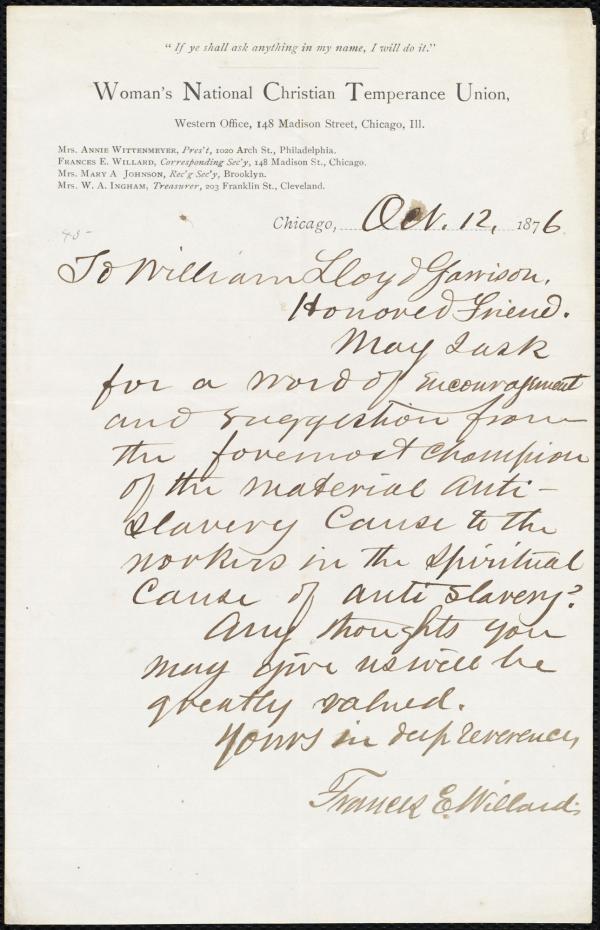 "If ye shall ask anything in my name, I will do it."
Woman's National Christian Temperance Union,
Western Office, 148 Madison Street, Chicago, Ill.
Mrs. Annie Wittenmeyer, Pres't, 1020 Arch St., Philadelphia.
Frances E. Willard, Corresponding Sec'y, 148 Madison St., Chicago.
Mrs. Mary A Johnson, Rec'g Sec'y, Brooklyn.
Mrs. W. A. Ingham, Treasurer, 203 Franklin St., Cleveland.
Chicago, Oct. 12, 1876
To William Lloyd Garrison,
Honored Friend.
May I ask
for a word of encouragement
and suggestion from
the foremost champion
of the material anti-
slavery cause to the
workers in the spiritual
cause of anti slavery?
Any thoughts you
may give us will be
greatly valued.
Yours in deep reverence,
Frances E. Willard.